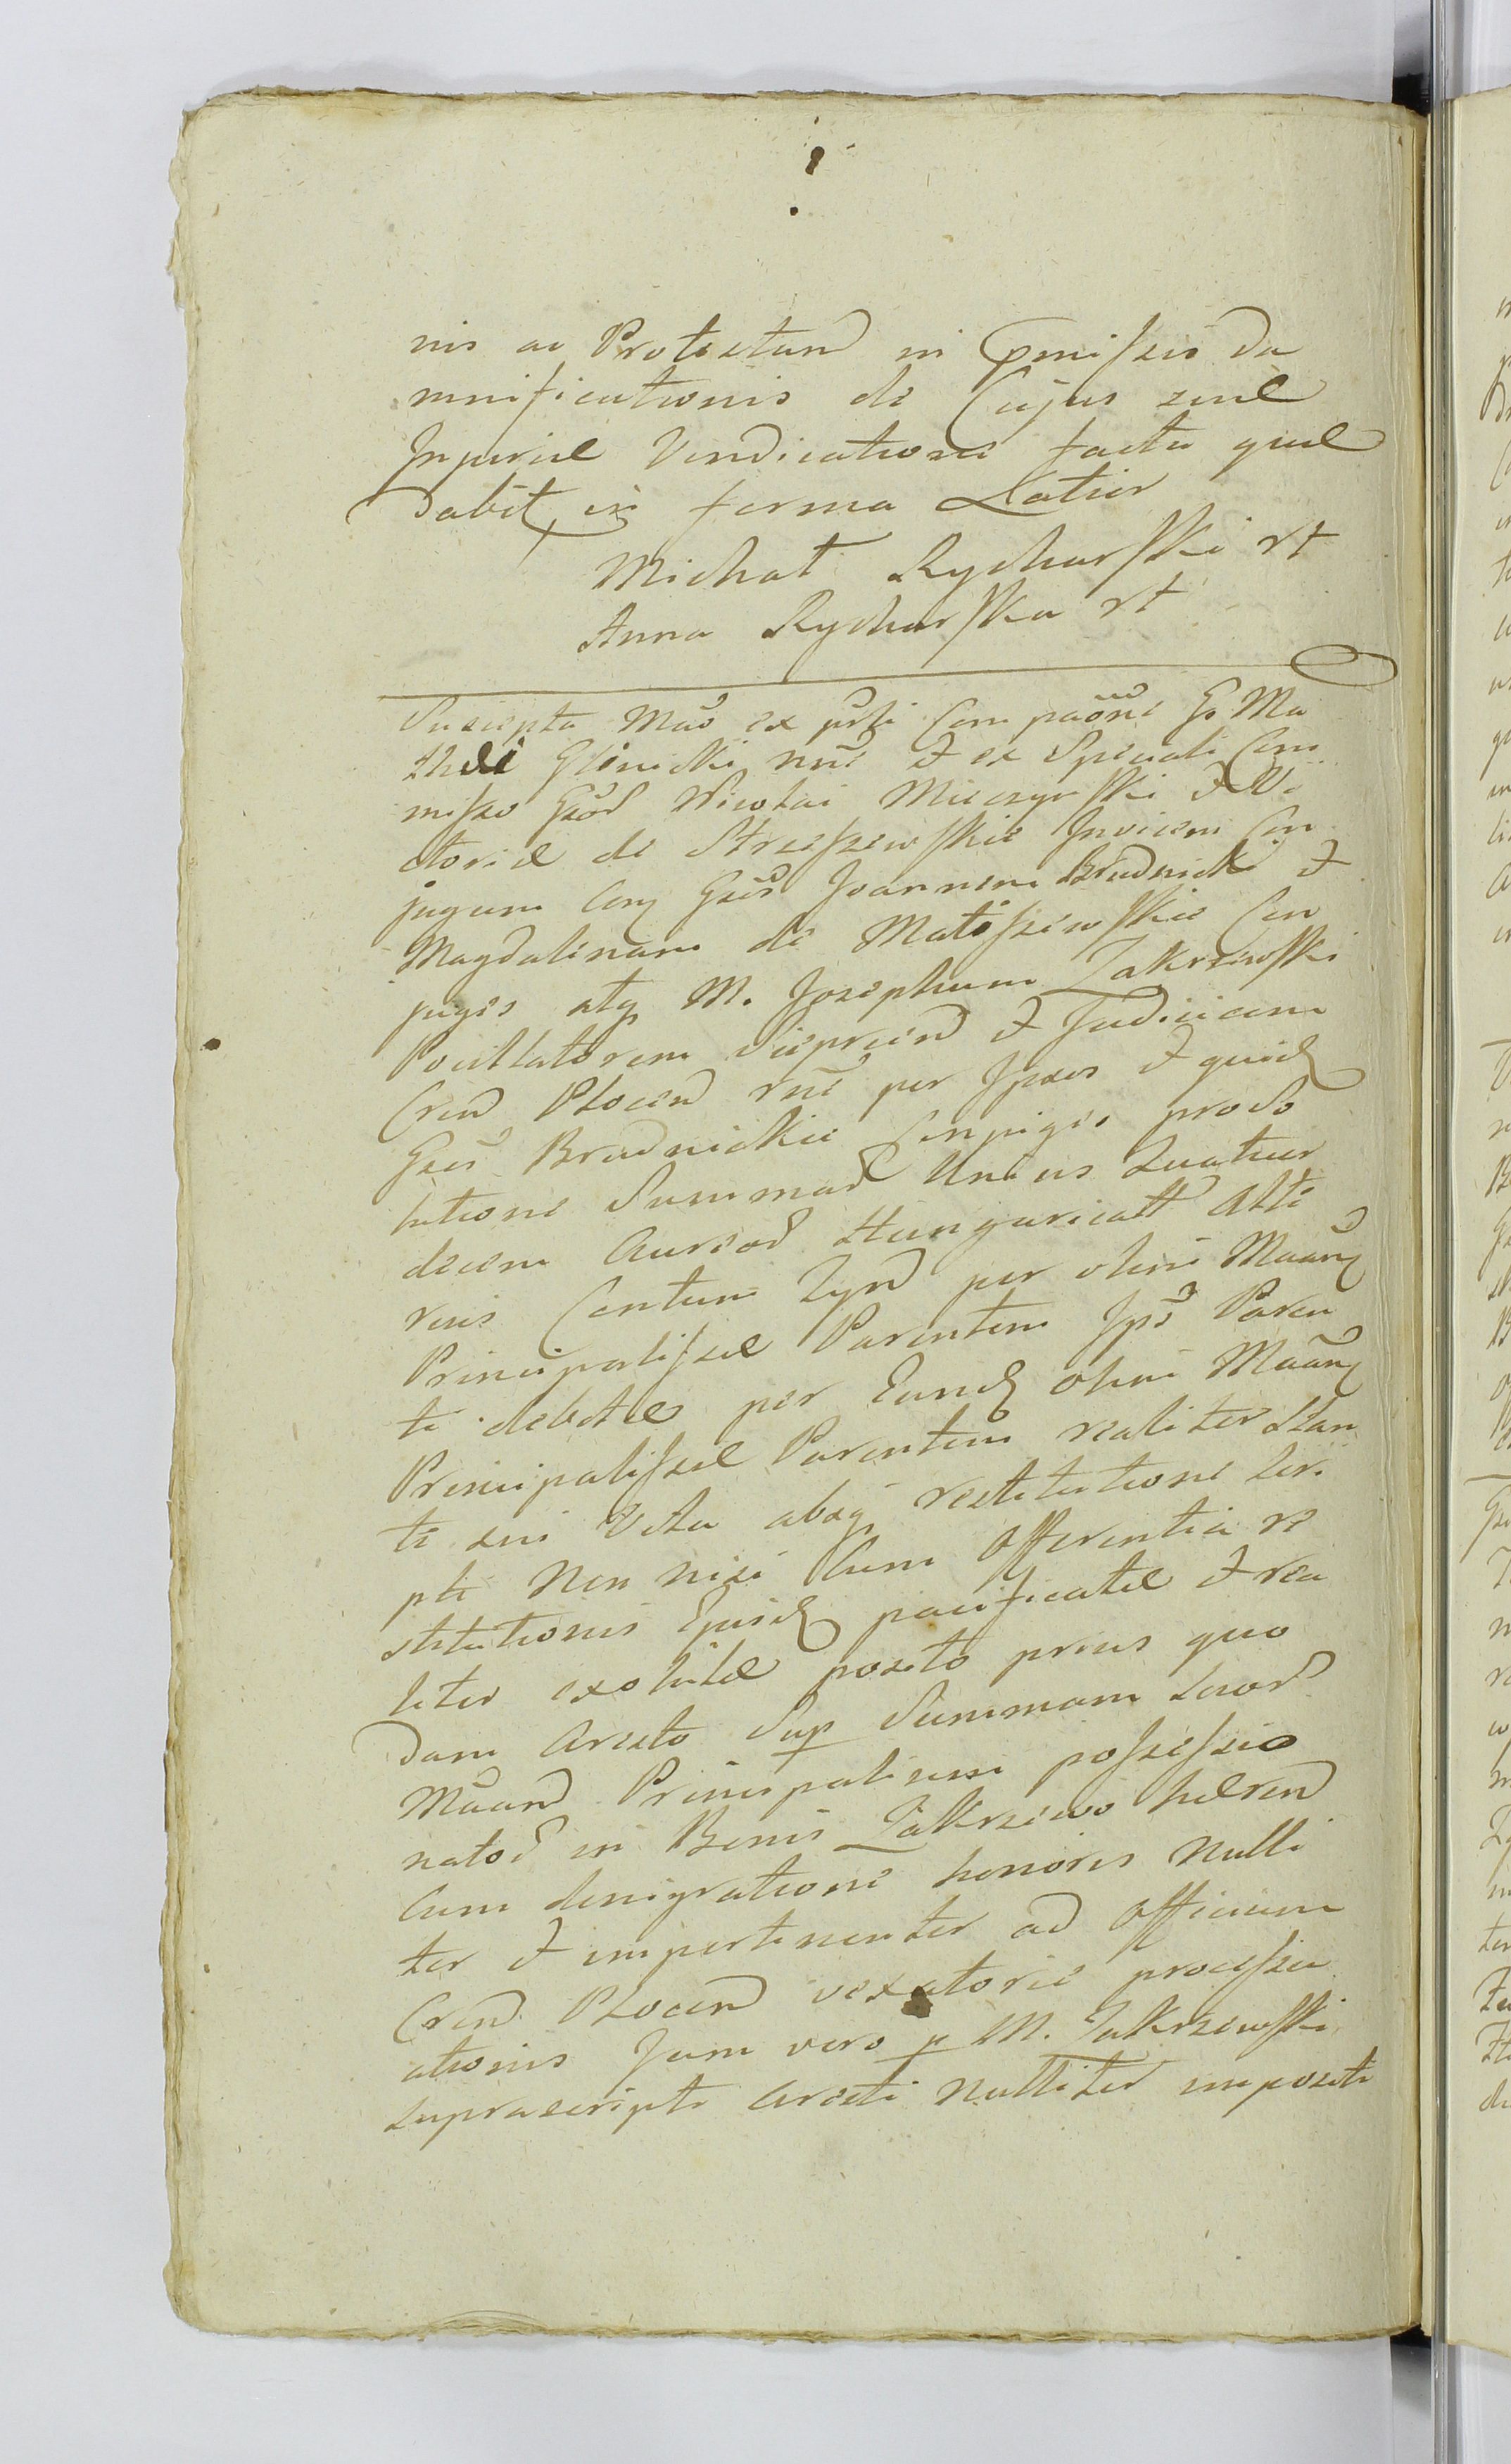 nis ac Protestand in Pmissis da
mnificationis de Cujus suae
Injuriae Vindicatione facta quae
dabit in forma Latior
Michał Rycharski rt
Anna Rycharska rt
Suscepta Mão ex psti Compaõne Gs Ma
thei Glinicki nñe et ex Speciali Com
misso Gsõr Nicolai Mieczynski et Vi
ctoriae de Strzeszewskie Invicem Con
jugum Cong Gsõs Joannem Brudnicki et
Magdalenam de Matoszewskie Con
juges atq M. Josephum Zakrzewski
Pocillatorem Sieprcen et Judicem
Cren Plocen rñe per Ipsos et quid
Gsõs Brudnickie Conjuges proso
lutione Summar Unius Quatuor
decem Aureor Hungaricalt Alte
rius Centum Tyn per olim Maan
Principalissae Parentem Ips Paren
ti debitae per Eund olim Maan
Principalissae Parentem realiter Stan
te sui Vita absq restitutione Scri
pti Non nisi Cum Offerentia re
stitutionis Ejusd pacificatae et rea
liter exolutae posito prius quo
dam Aresto Sup Summam suor
Maan Principalium possessio
nator in Bonis Zakrzewo haeren
Cum denigratione honoris Nulli
ter et impertinenter ad Officium
Cren Plocen vexatorie processu
ationis Jam vero p M. Zakrzewski
suprascripti Aresti Nulliter impositi